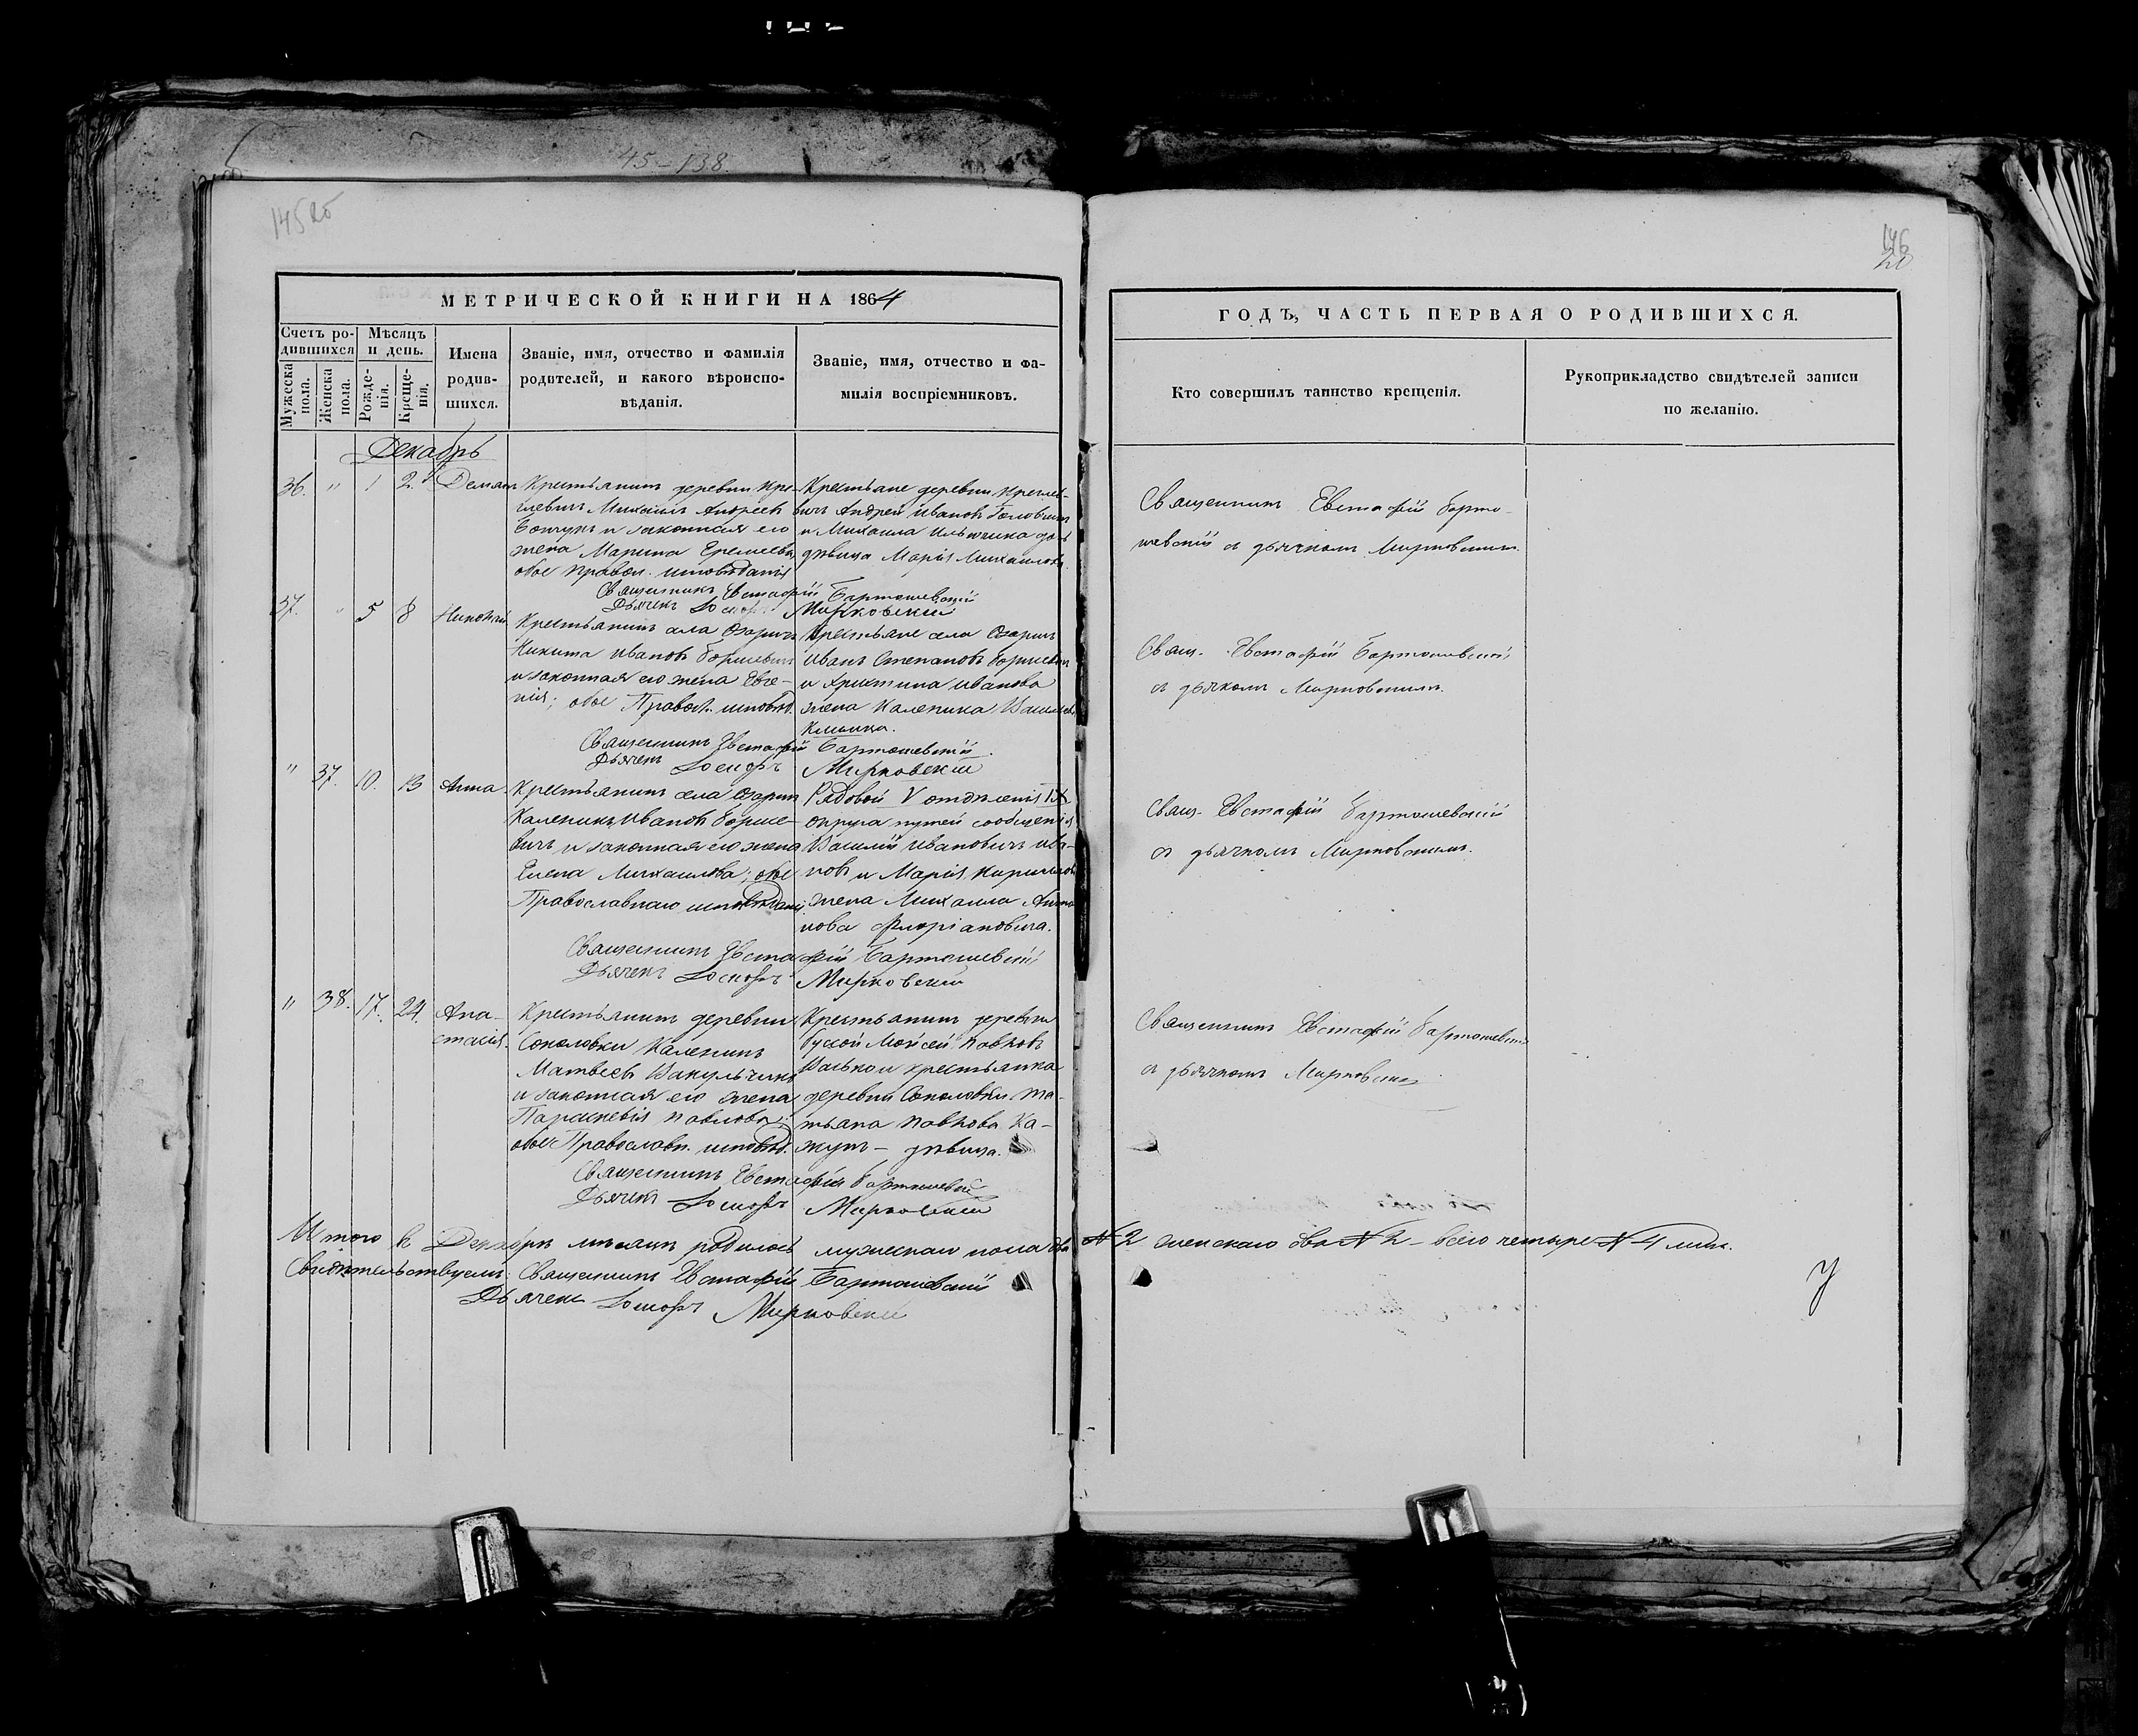 45-138.
145 об
146
МЕТРИЧЕСКОЙ КНИГИ НА 1864
ГОДЪ, ЧАСТЬ ПЕРВАЯ О РОДИВШИХСЯ.
Счетъ ро-
дившихся
Мужеска
пола.
Женска
пола.
Мѣсяцъ
и день.
Рожде-
нія.
Креще-
нія.
Имена
родив-
шихся.
Званіе, имя, отчество и фамилія
родителей, и какого вѣроиспо-
вѣданія.
Званіе, имя, отчество и фа-
милія воспріемниковъ.
Кто совершилъ таинство крещенія.
Рукоприкладство свидѣтелей записи
по желанію.
Декабрь
36. " 1 2. Деміан
Крестьянинъ деревни
Михаилъ Андреевъ
и законная его
жена Марина Еремеева
обое правосл. исповѣданія
Крестьяне деревни
Андрей Ивановъ
и Михаила
дѣвица Марія Михаилова.
Священникъ Евстафій
с дьячкомъ Мирковскимъ.
Священникъ Евстафій Бартошевскій
Дьячекъ Іосифъ Мирковскій
37. " 5 8 Николай
Крестьянинъ села Озаричъ
Никита Ивановъ Боришевичъ
и законная его жена Евге-
нія; обое Правосл. исповѣд.
Крестьяне села Озаричъ
Иванъ Степановъ Боришевичъ
и Христина Иванова
жена Каленика
Свящ. Евстафій Бартошевскій
с дьячкомъ Мирковскимъ.
Священникъ Евстафій Бартошевскій.
Дьячекъ Іосифъ Мирковскій
" 37. 10. 13 Анна
Крестьянинъ села Озаричъ
Каленикъ Ивановъ Борише-
вичъ и законная его жена
Елена Михаилова; обое
Православнаго исповѣданія.
Рядовой V отдѣленія IX
округа путей сообщенія
Василій Ивановичъ Ива-
новъ и Марія
жена Михаила
нова Флоріановича.
Свящ. Евстафій Бартошевскій
с дьячкомъ Мирковскимъ.
Священникъ Евстафій Бартошевскій
Дьячекъ Іосифъ Мирковскій
" 38. 17. 24. Ана-
стасія.
Крестьянинъ деревни
Соколовки Каленикъ
Матвеевъ Вакульчикъ
и законная его жена
Параскевія Павлова;
обое Православн. исповѣд.
Крестьянинъ деревни
Мойсей Павловъ
и крестьянка
деревни Соколовки Та-
тьяна Павлова Ка-
журъ - дѣвица.
Священникъ Евстафій Бартошевскій
с дьячкомъ Мирковскимъ
Священникъ Евстафій Бартошевскій
Дьячекъ Іосифъ Мирковскій
Итого въ Декабрѣ мѣсяцѣ родилось мужескаго пола два № 2 женскаго два № 2 - всего четыре № 4 лица.
Свидѣтельствуемъ: Священникъ Евстафій Бартошевскій
Дьячекъ Іосифъ Мирковскій